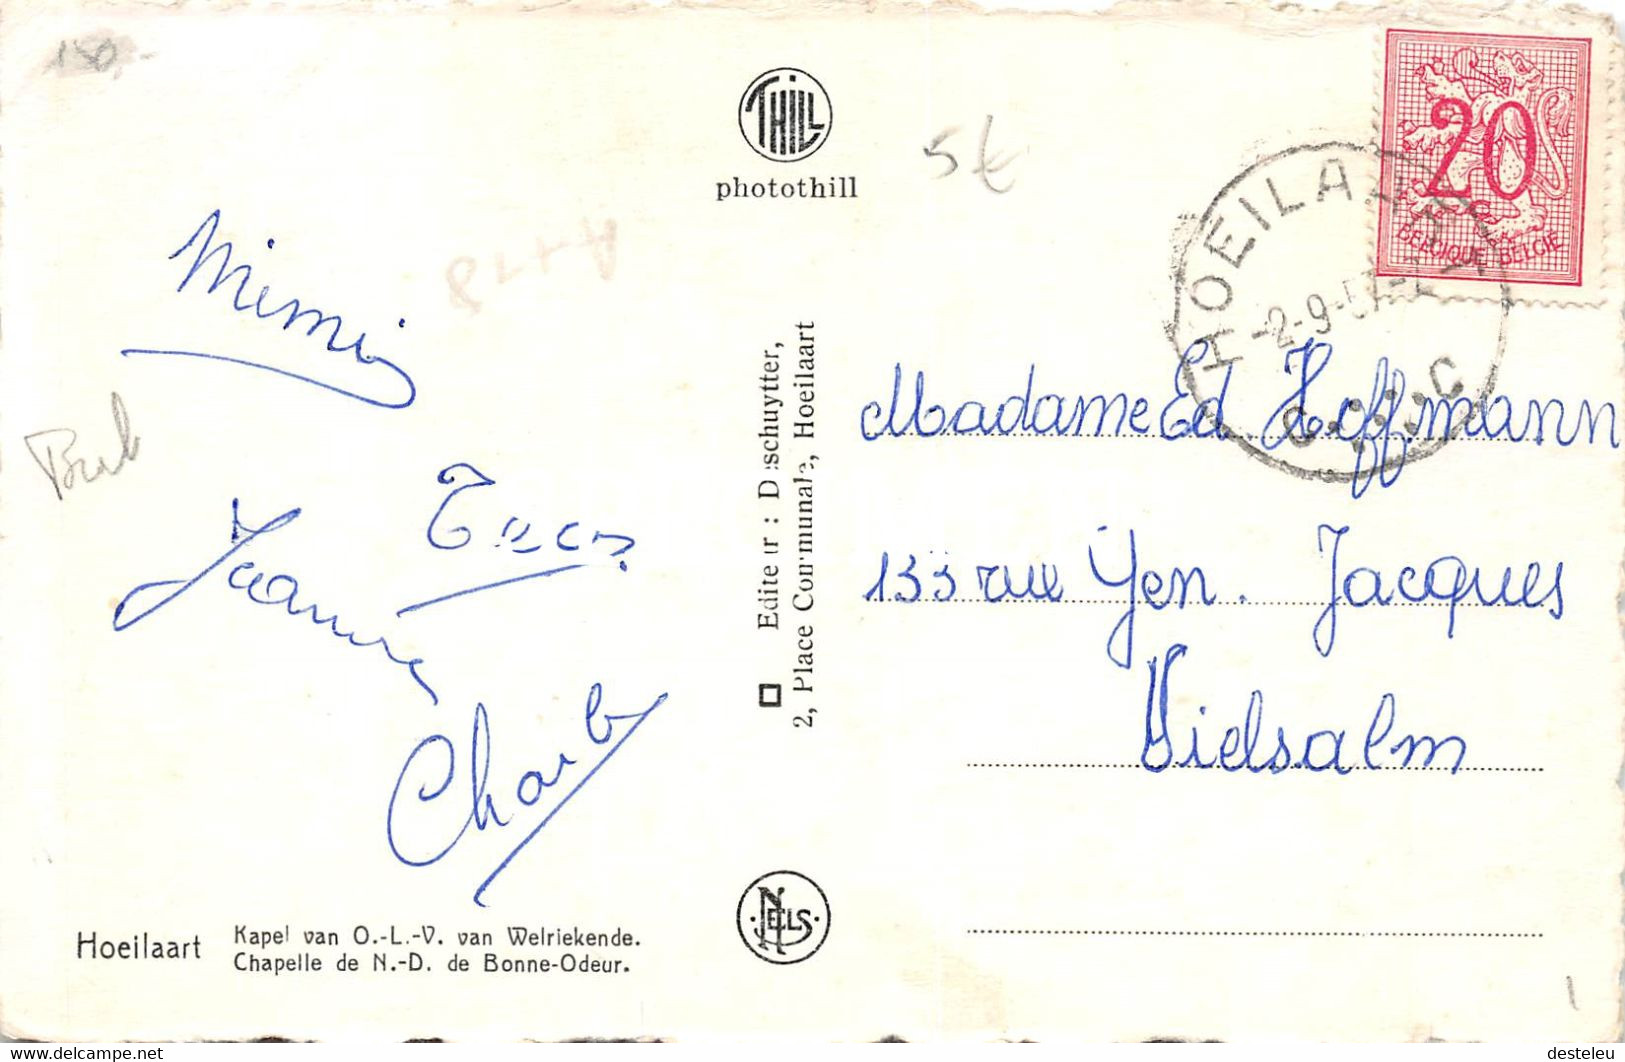 150,-
THILL
photothill
5€
HOEILAART
-2-9-57-
C C
20
c
BELGIQUE BELGIE
Mimi
Jeanine
Charles
Editeur : Deschuytter,
2, Place Communale, Hoeilaart
Madame Ed Hoffmann
133 rue Gen. Jacques
Vielsalm
NELS
Hoeilaart
Kapel van O.-L.-V. van Welriekende.
Chapelle de N.-D. de Bonne-Odeur.
1
www.delcampe.net
desteleu